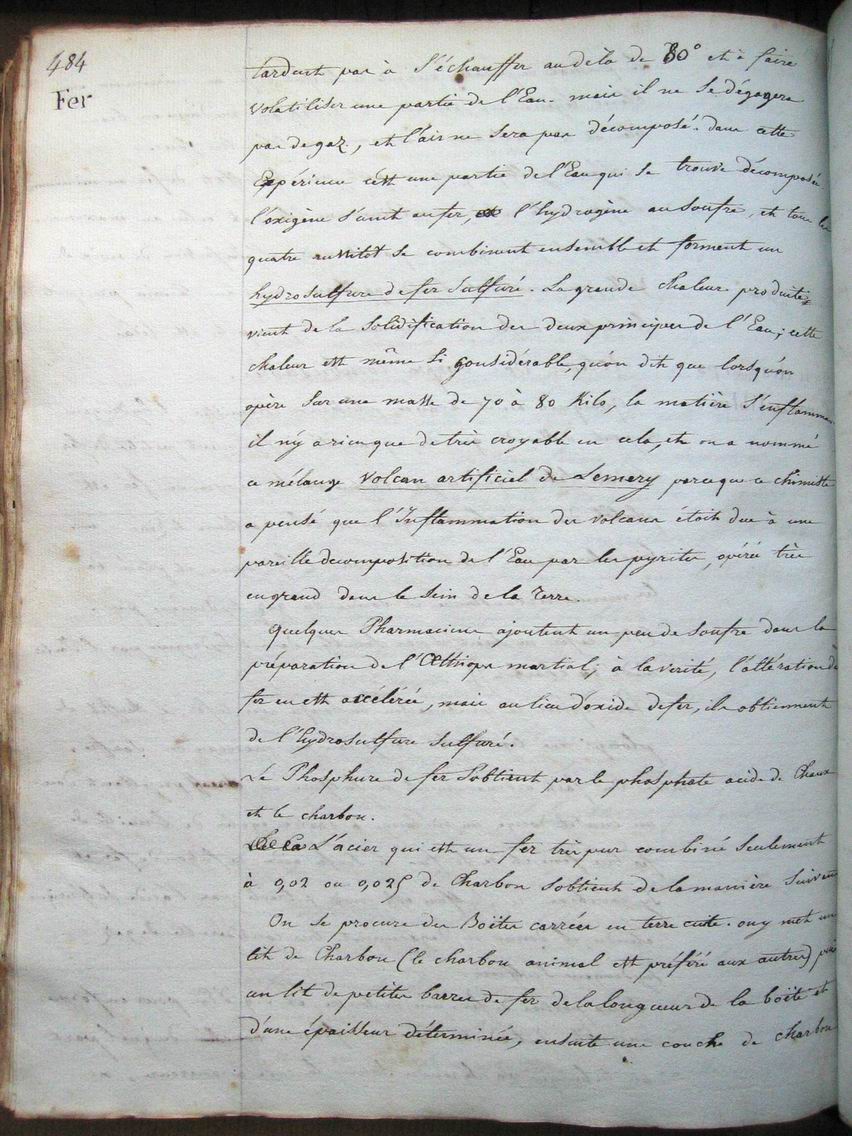 484
Fer
tardent pas à s'échauffer au delà de 80° et à faire
volatiliser une partie de l'Eau. mais il ne se dégagera
pas de gaz, et l'air ne sera pas décomposé. dans cette
Expérience c'est une partie de l'Eau qui se trouve décomposée
l'oxigène s'unit au fer, l'hydrogène au soufre, et tous les
quatre aussitôt se combinent ensemble et forment un
hydrosulfure de fer sulfuré. La grande chaleur produite
vient de la solidification des deux principes de l'Eau; cette
chaleur est même si considérable, qu'on dit que lorsqu'on
opère sur une masse de 70 à 80 Kilo, la matière s'enflamme
il n'y a rien que de très croyable en cela, et on a nommé
ce mélange Volcan artificiel de Lemery parceque ce chimiste
a pensé que l'Inflammation des volcans étoit due à une
pareille decomposition de l'Eau par les pyrites, opérée très
en grand dans le sein de la Terre.
Quelques Pharmaciens ajoutent un peu de soufre dans la
préparation de l'Œthiops martial; à la verité, l'altération du
fer en est accelérée, mais au lieu d'oxide de fer, ils obtiennent
de l'hydrosulfure sulfuré.
Le Phosphure de fer s'obtient par le phosphate acide de Chaux
et le charbon.
L'acier qui est un fer très pur combiné seulement
à 0,02 ou 0,025 de Charbon s'obtient de la manière suivante
On se procure des Boëtes carrées en terre cuite. on y met un
lit de Charbon (le charbon animal est préféré aux autres) puis
un lit de petites barres de fer de la longueur de la boëte et
d'une épaisseur déterminée, ensuite une couche de charbon